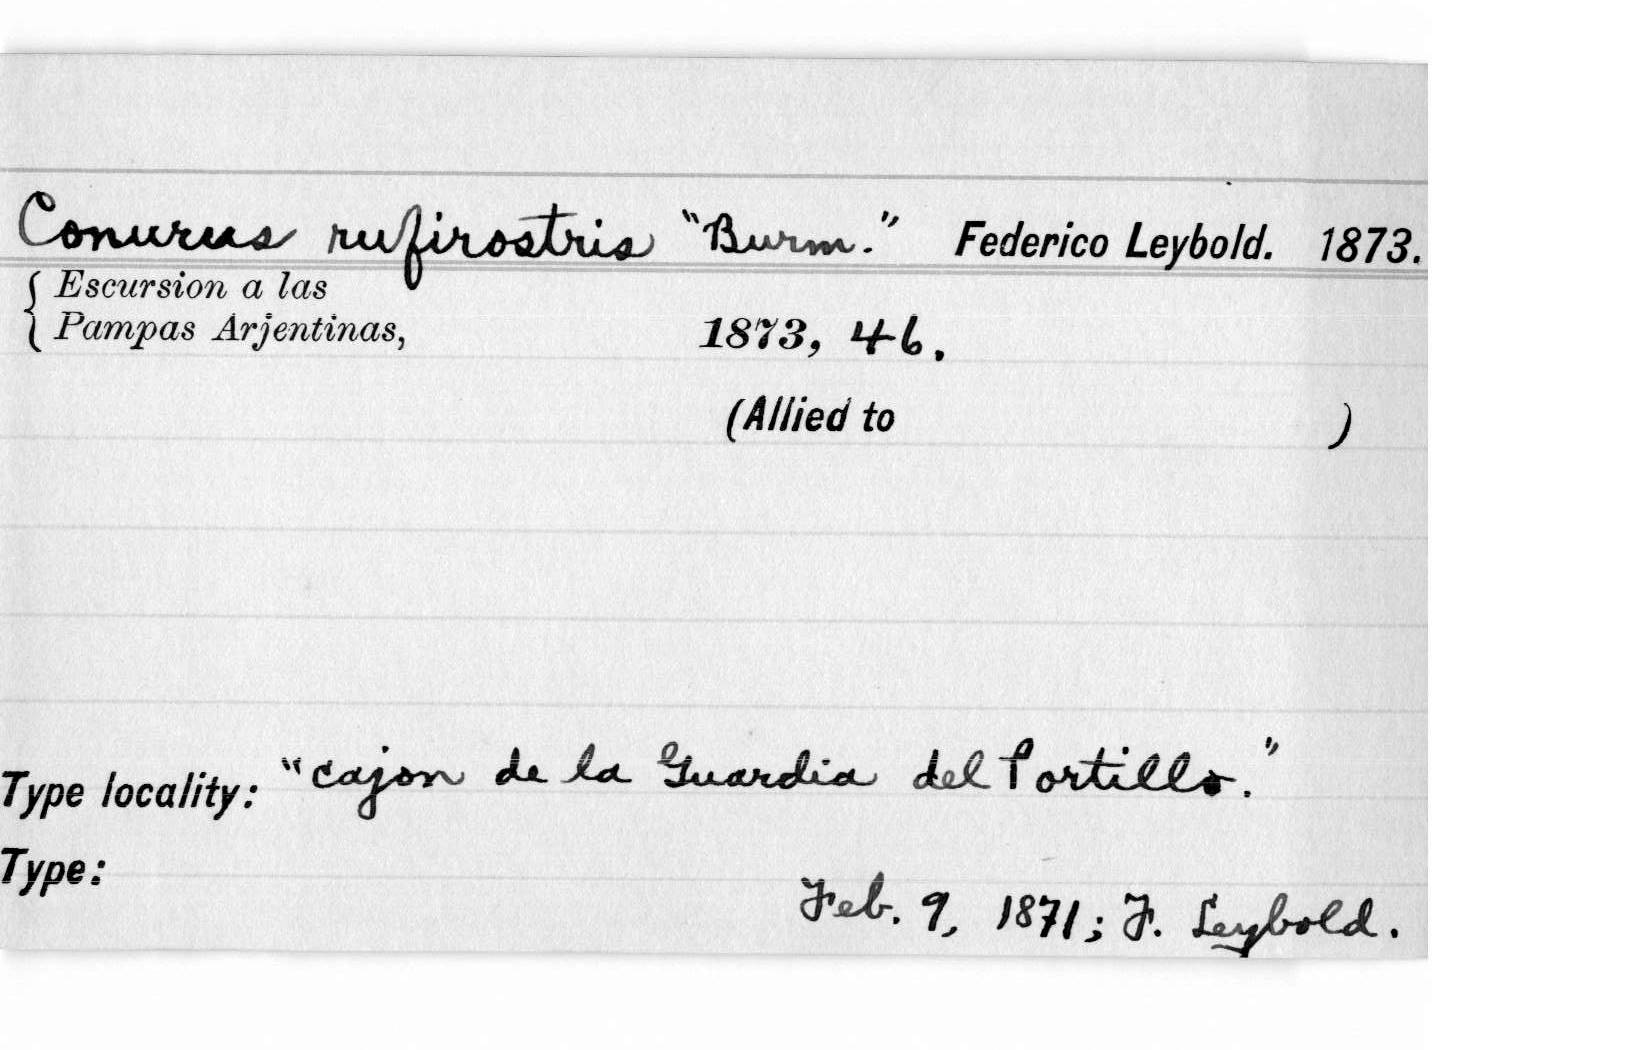 Conurus rufirostris "Burm." Federico Leybold. 1873.
Escursion a las
Pampas Arjentinas, 1873, 46.
(Allied to )
Type locality: "cajon de la Guardia del Portillo."
Type:
Feb. 9, 1871; F. Leybold.